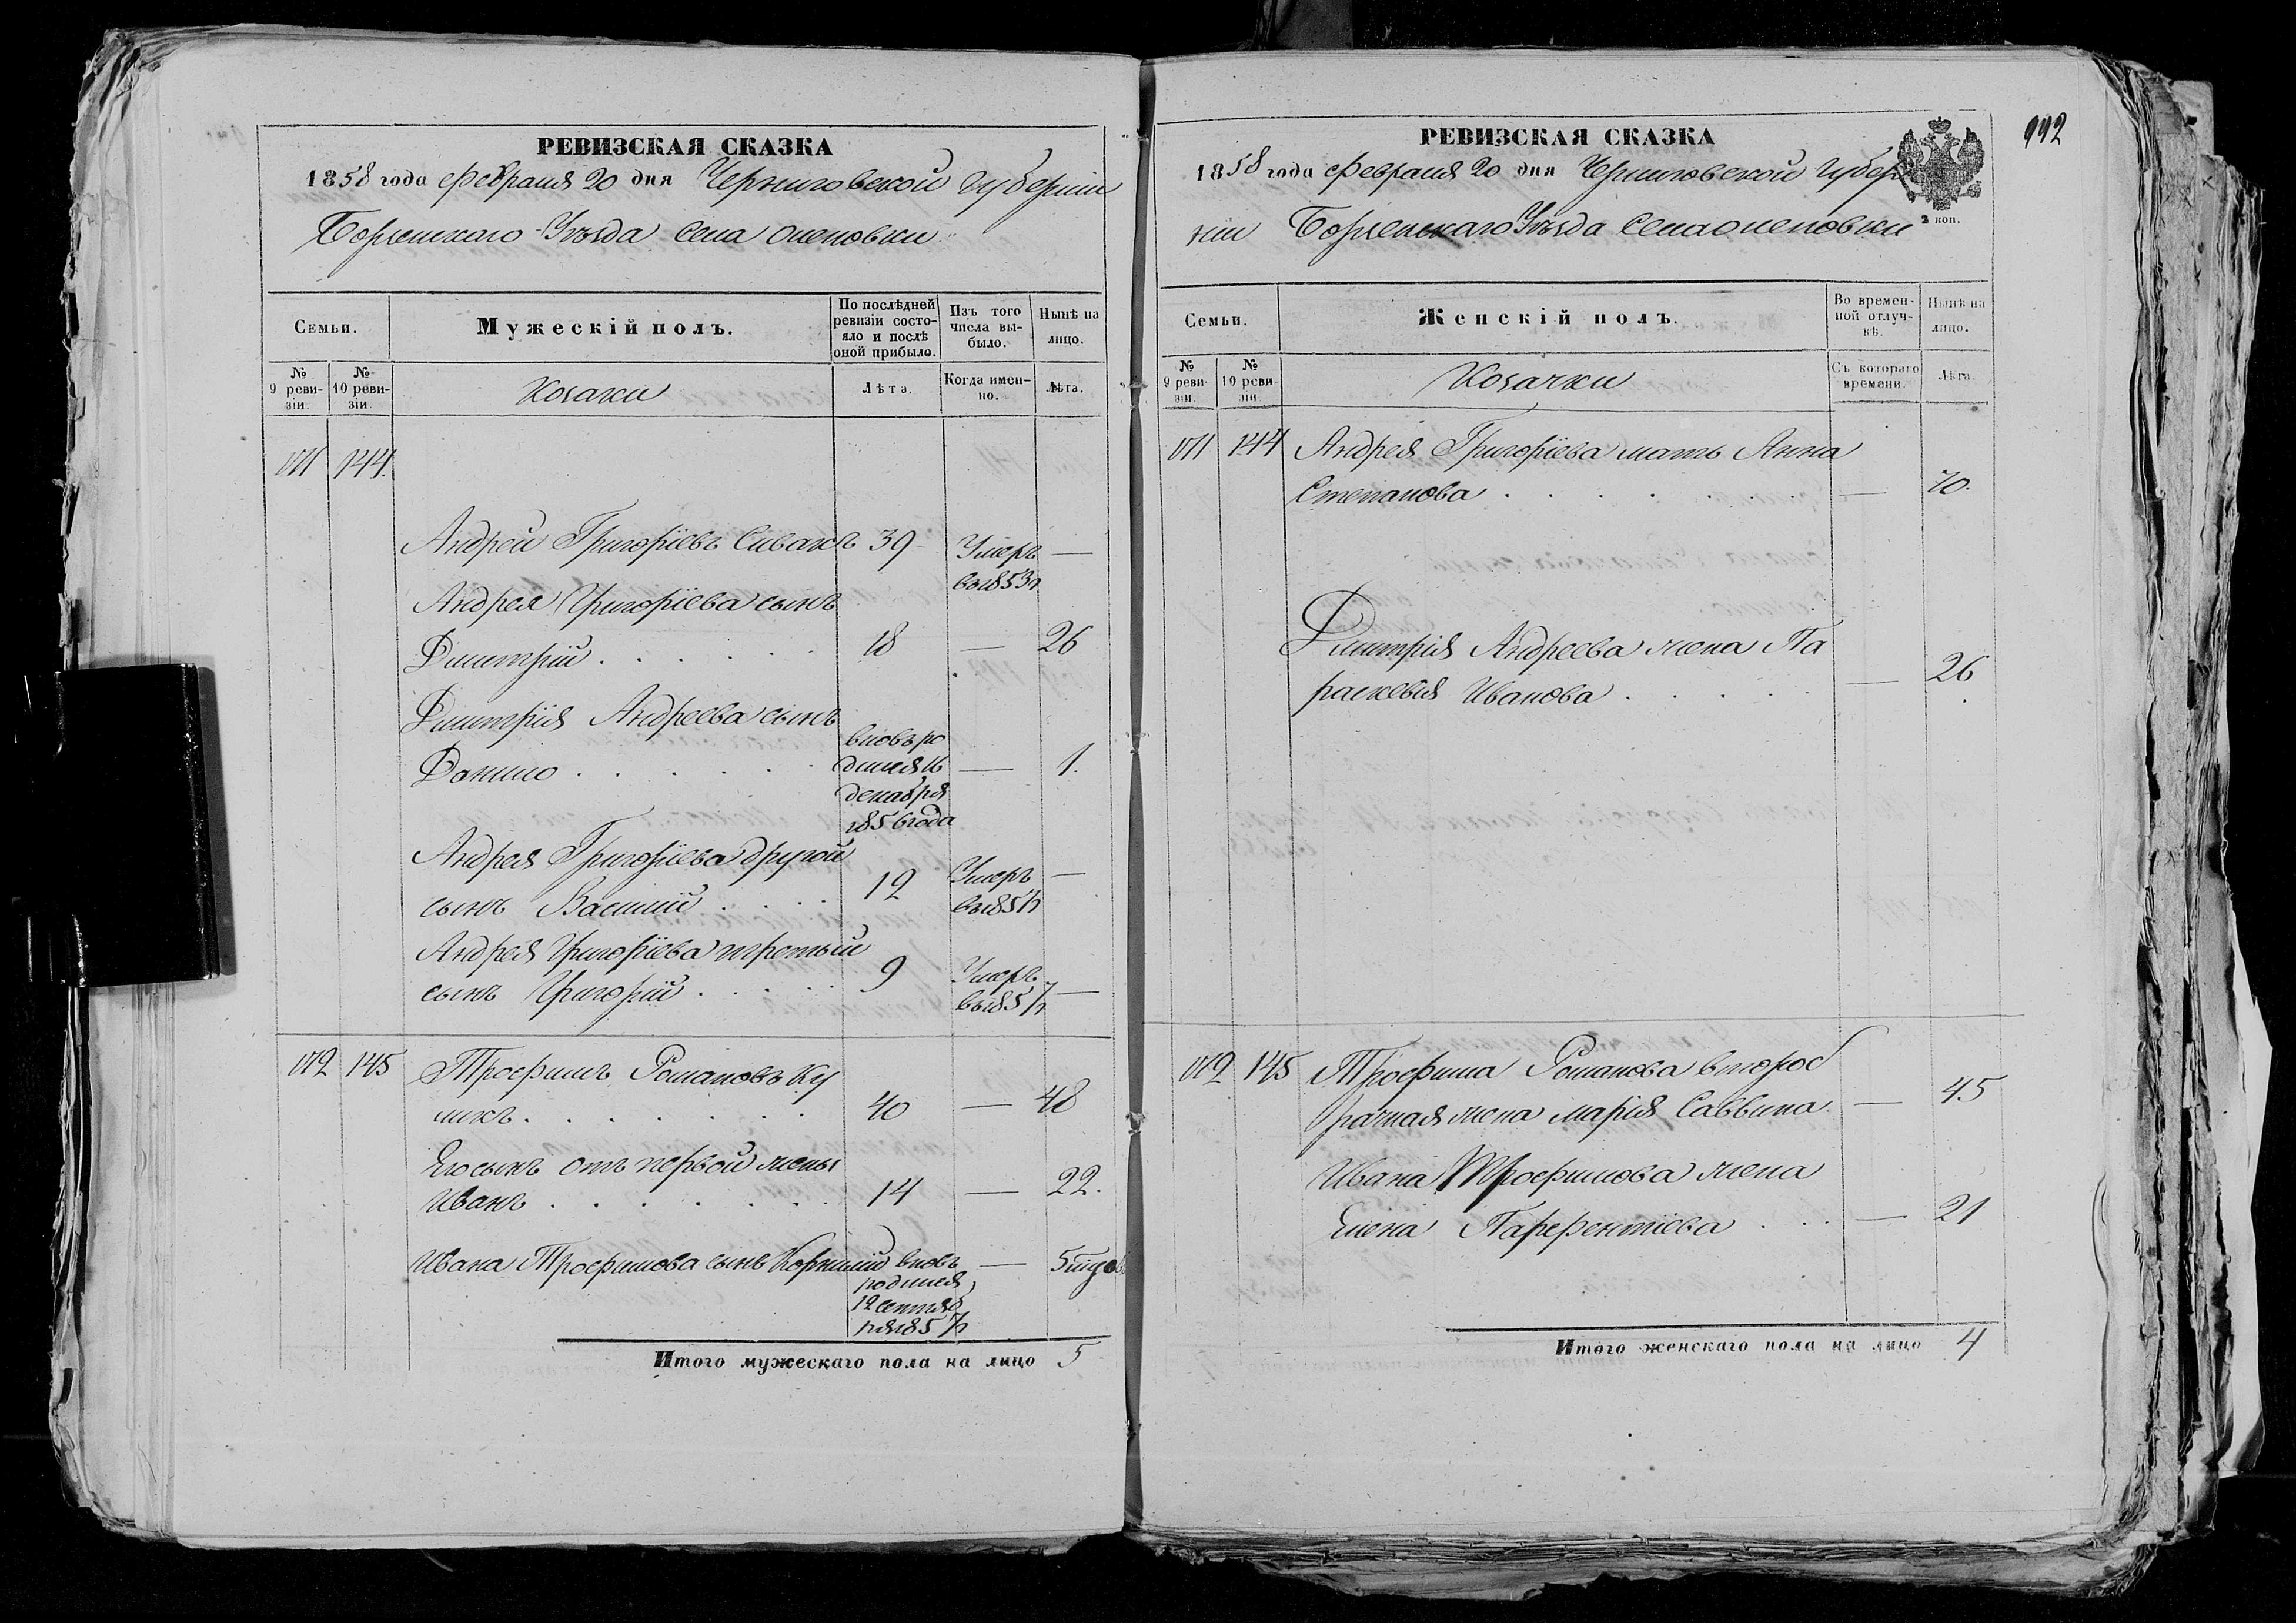 РЕВИЗСКАЯ СКАЗКА
1858 года февраля 20 дня Черниговской губерніи
Борзенскаго Уѣзда села Оленовки
Семьи.
Мужескій полъ.
По послѣдней ревизіи состояло и послѣ оной прибыло.
Изъ того числа выбыло.
Нынѣ на лицо.
№ 9 ревизіи.
№ 10 ревизіи.
Козаки
Лѣта.
Когда именно.
Лѣта.
144
Андрей Григоріевъ Сивакъ 39 Умеръ —
въ 1853 г
Андрея Григоріева сынъ
Димитрій . . . . . . 18 — 26
Димитрія Андреева сынъ
вновь ро
Данило . . . . . . дился 16 — 1.
декабря
1856 года
Андрея Григоріева другой
сынъ Василій . . . . 12 Умеръ —
въ 185 г
Андрея Григоріева третьій
сынъ Григорій . . . . . 9 Умеръ —
въ 1857 г
145 Трофимъ Романовъ Ку
ликъ . . . . . . . 40 — 48
Его сынъ отъ первой жены
Иванъ . . . . . . . 14 — 22.
Ивана Трофимова сынъ Корнилій вновь — 5 мѣсяц
родился
12 сентяб
ря 1857 г
Итого мужескаго пола на лицо 5
992
РЕВИЗСКАЯ СКАЗКА
1858 года февраля 20 дня Черниговской губер
ніи Борзенскаго Уѣзда Села Оленовки
2 коп.
Семьи.
Женскій полъ.
Во временной отлучкѣ.
Нынѣ на лицо.
№ 9 ревизіи.
№ 10 ревизіи.
Козачки
Съ котораго времени.
Лѣта.
144 Андрея Григоріева мать Анна
Степанова . . . . . . . — 70.
Димитрія Андреева жена Па
раскевія Иванова . . . . . — 26
145 Трофима Романова второб
рачная жена Марія Саввина — 45
Ивана Трофимова жена
Елена Парфентіева . . . — 21
Итого женскаго пола на лицо 4